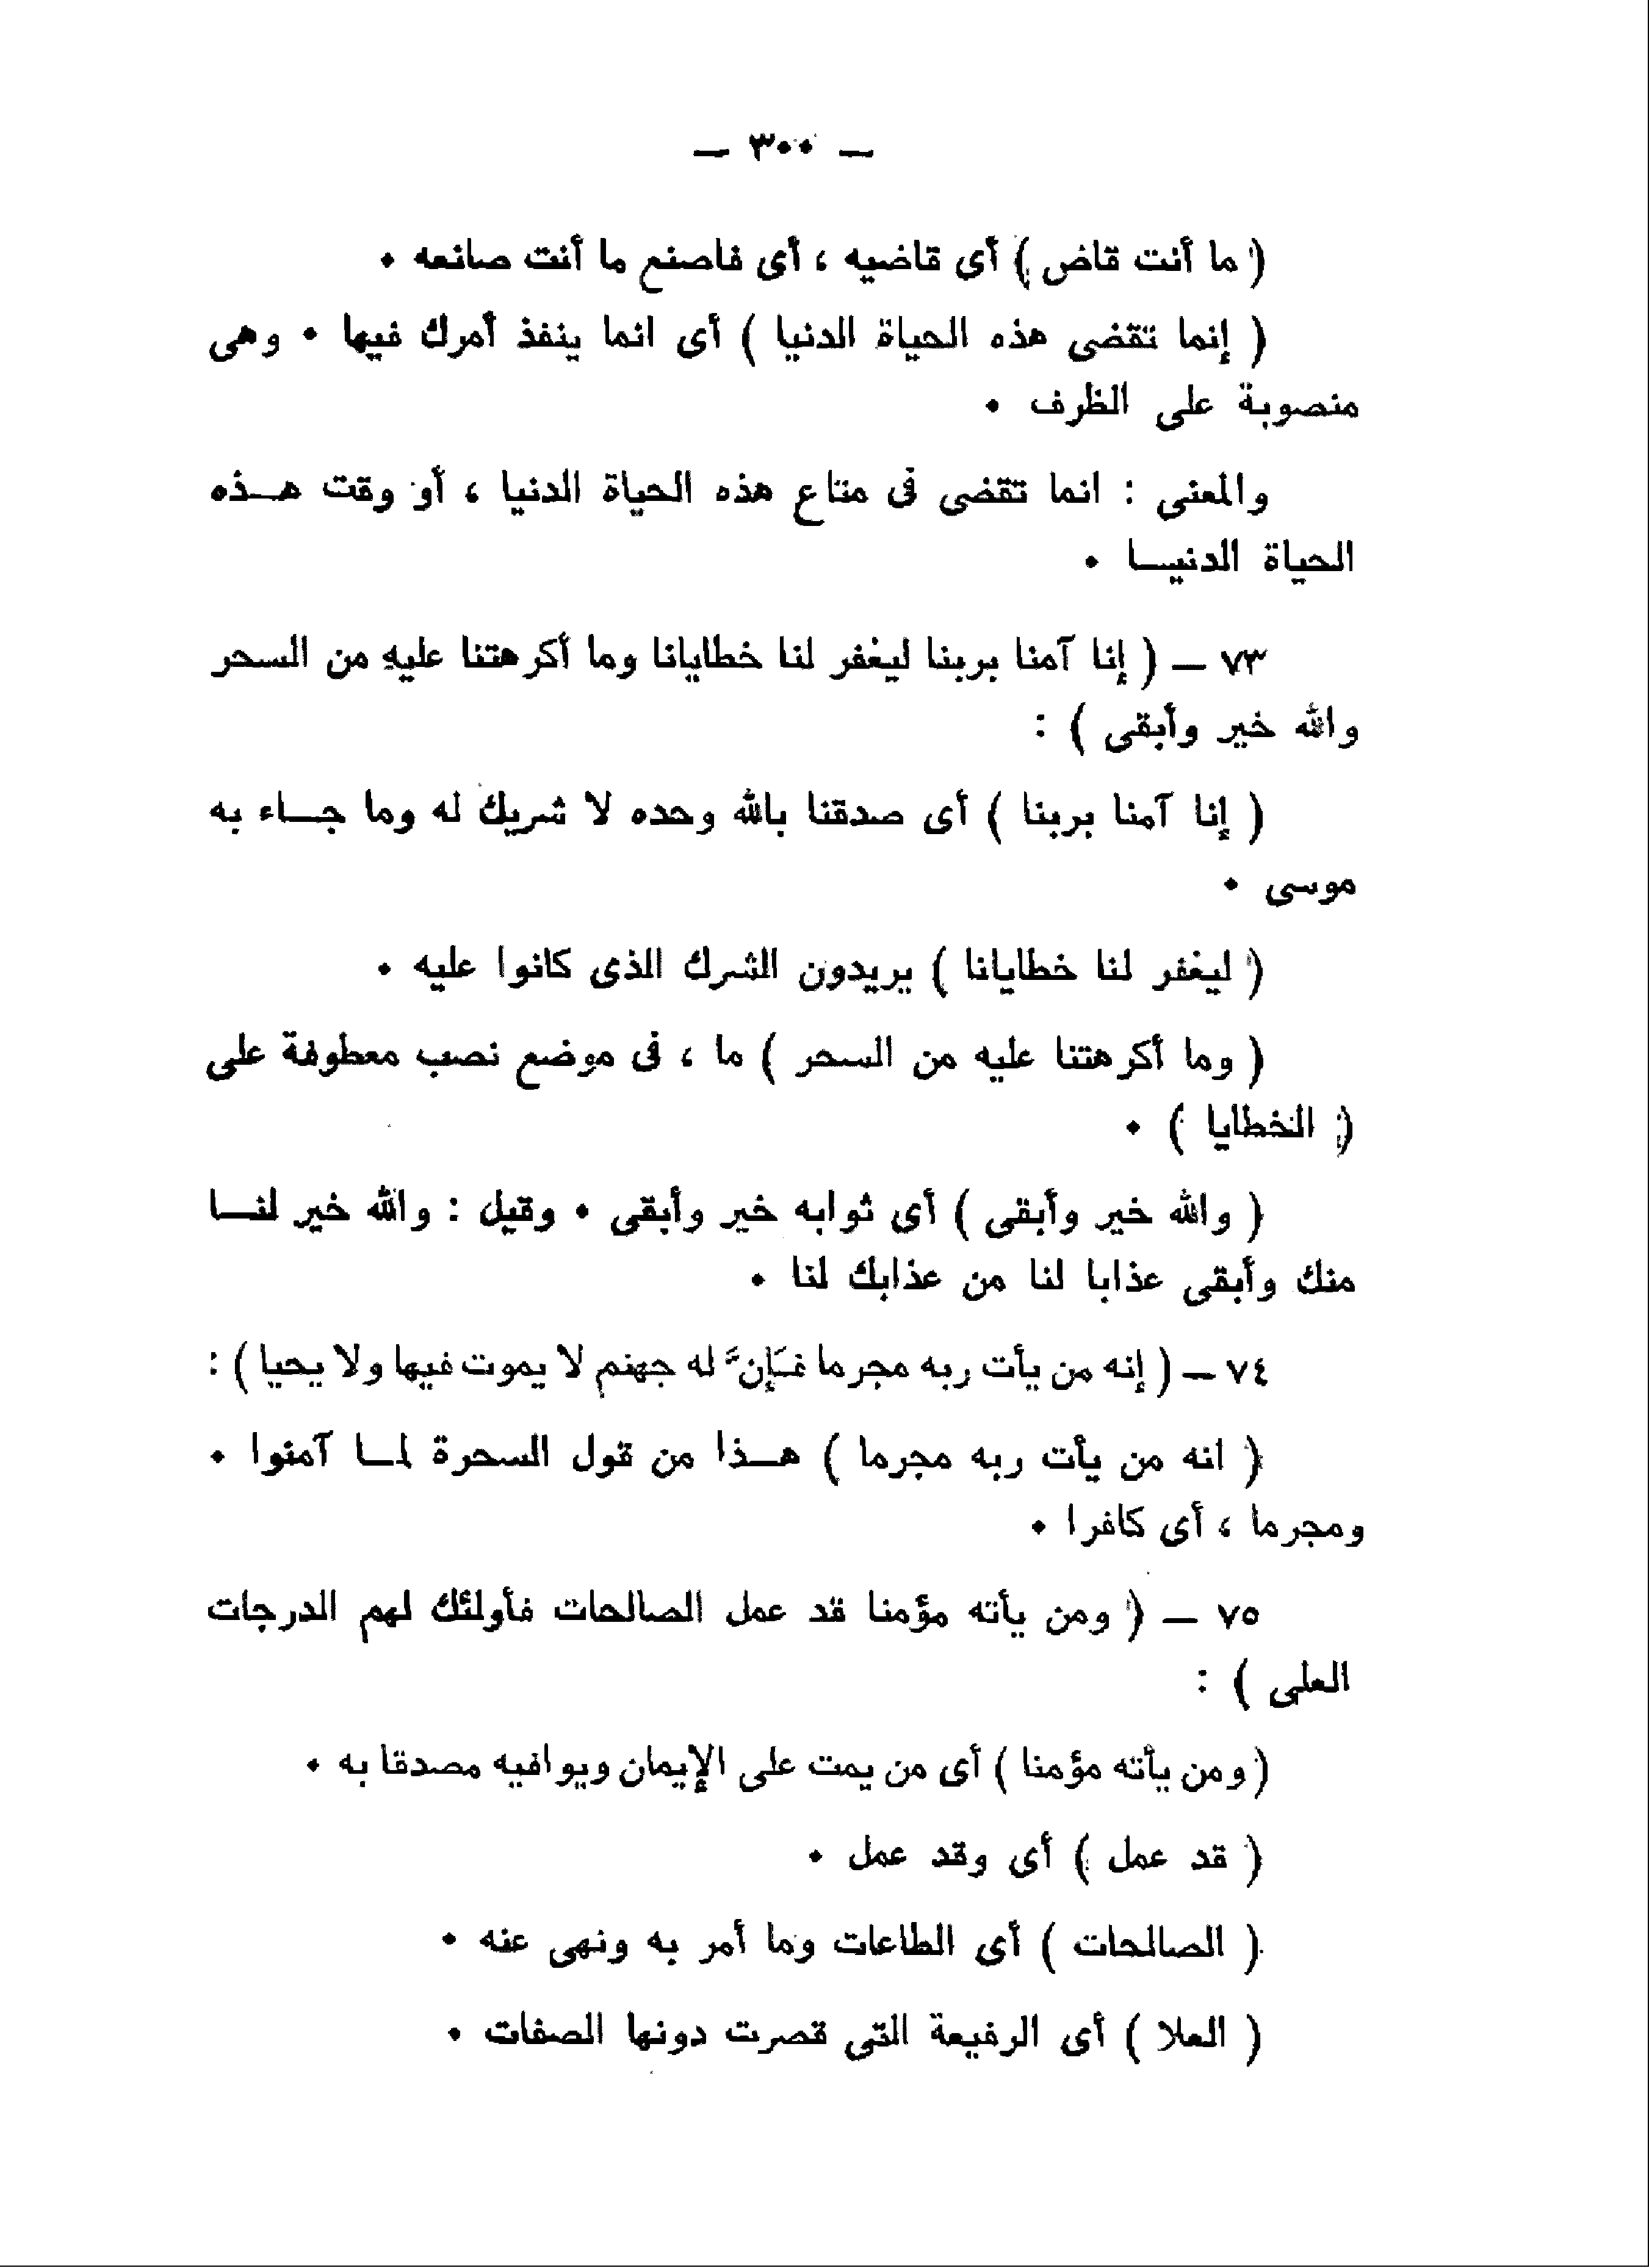 — ٣٠٠ —
( ما أنت قاض ) أى قاضيه ، أى فاصنع ما أنت صانعه .
( إنما تقضى هذه الحياة الدنيا ) أى انما ينفذ أمرك فيها . وهى
منصوبة على الظرف .
والمعنى : انما تقضى فى متاع هذه الحياة الدنيا ، أو وقت هـذه
الحياة الدنيـا .
٧٣ — ( إنا آمنا بربنا ليغفر لنا خطايانا وما أكرهتنا عليه من السحر
والله خير وأبقى ) :
( إنا آمنا بربنا ) أى صدقنا بالله وحده لا شريك له وما جـاء به
موسى .
( ليغفر لنا خطايانا ) يريدون الشرك الذى كانوا عليه .
( وما أكرهتنا عليه من السحر ) ما ، فى موضع نصب معطوفة على
( الخطايا ) .
( والله خير وأبقى ) أى ثوابه خير وأبقى . وقيل : والله خير لنـا
منك وأبقى عذابا لنا من عذابك لنا .
٧٤ — ( إنه من يأت ربه مجرما فَإِنَّ له جهنم لا يموت فيها ولا يحيا ) :
( انه من يأت ربه مجرما ) هـذا من قول السحرة لمـا آمنوا .
ومجرما ، أى كافرا .
٧٥ — ( ومن يأته مؤمنا قد عمل الصالحات فأولئك لهم الدرجات
العلى ) :
( ومن يأته مؤمنا ) أى من يمت على الإيمان ويوافيه مصدقا به .
( قد عمل ) أى وقد عمل .
( الصالحات ) أى الطاعات وما أمر به ونهى عنه .
( العلا ) أى الرفيعة التى قصرت دونها الصفات .